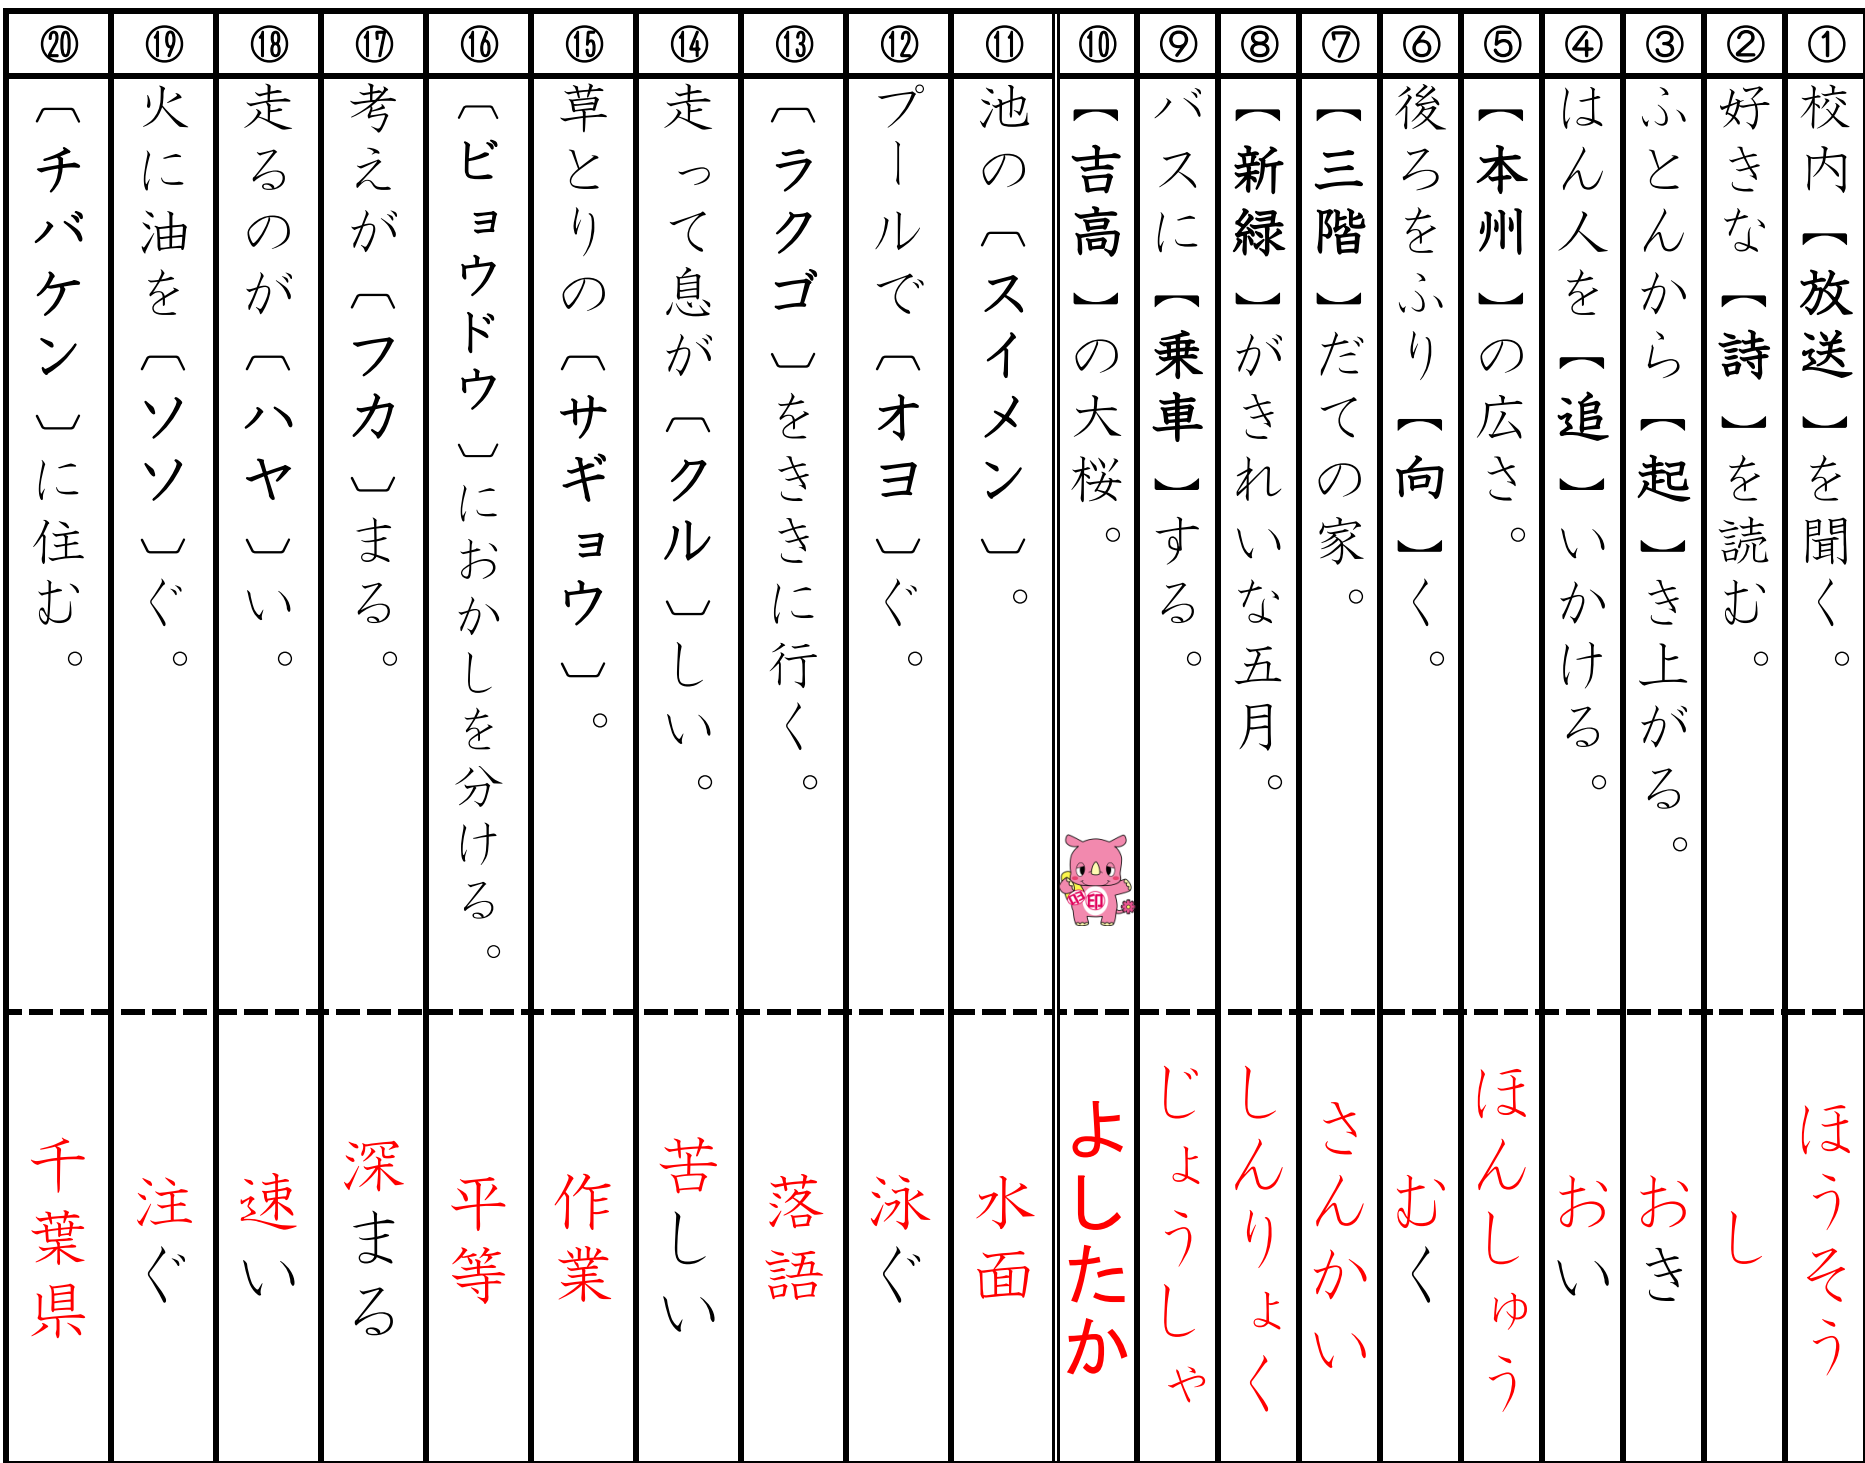 ①
校内【放送】を聞く。
ほうそう
②
好きな【詩】を読む。
し
③
ふとんから【起】き上がる。
おき
④
はん人を【追】いかける。
おい
⑤
【本州】の広さ。
ほんしゅう
⑥
後ろをふり【向】く。
むく
⑦
【三階】だての家。
さんかい
⑧
【新緑】がきれいな五月。
しんりょく
⑨
バスに【乗車】する。
じょうしゃ
⑩
【吉高】の大桜。
印
印
よしたか
⑪
池の〔スイメン〕。
水面
⑫
プールで〔オヨ〕ぐ。
泳ぐ
⑬
〔ラクゴ〕をききに行く。
落語
⑭
走って息が〔クル〕しい。
苦しい
⑮
草とりの〔サギョウ〕。
作業
⑯
〔ビョウドウ〕におかしを分ける。
平等
⑰
考えが〔フカ〕まる。
深まる
⑱
走るのが〔ハヤ〕い。
速い
⑲
火に油を〔ソソ〕ぐ。
注ぐ
⑳
〔チバケン〕に住む。
千葉県